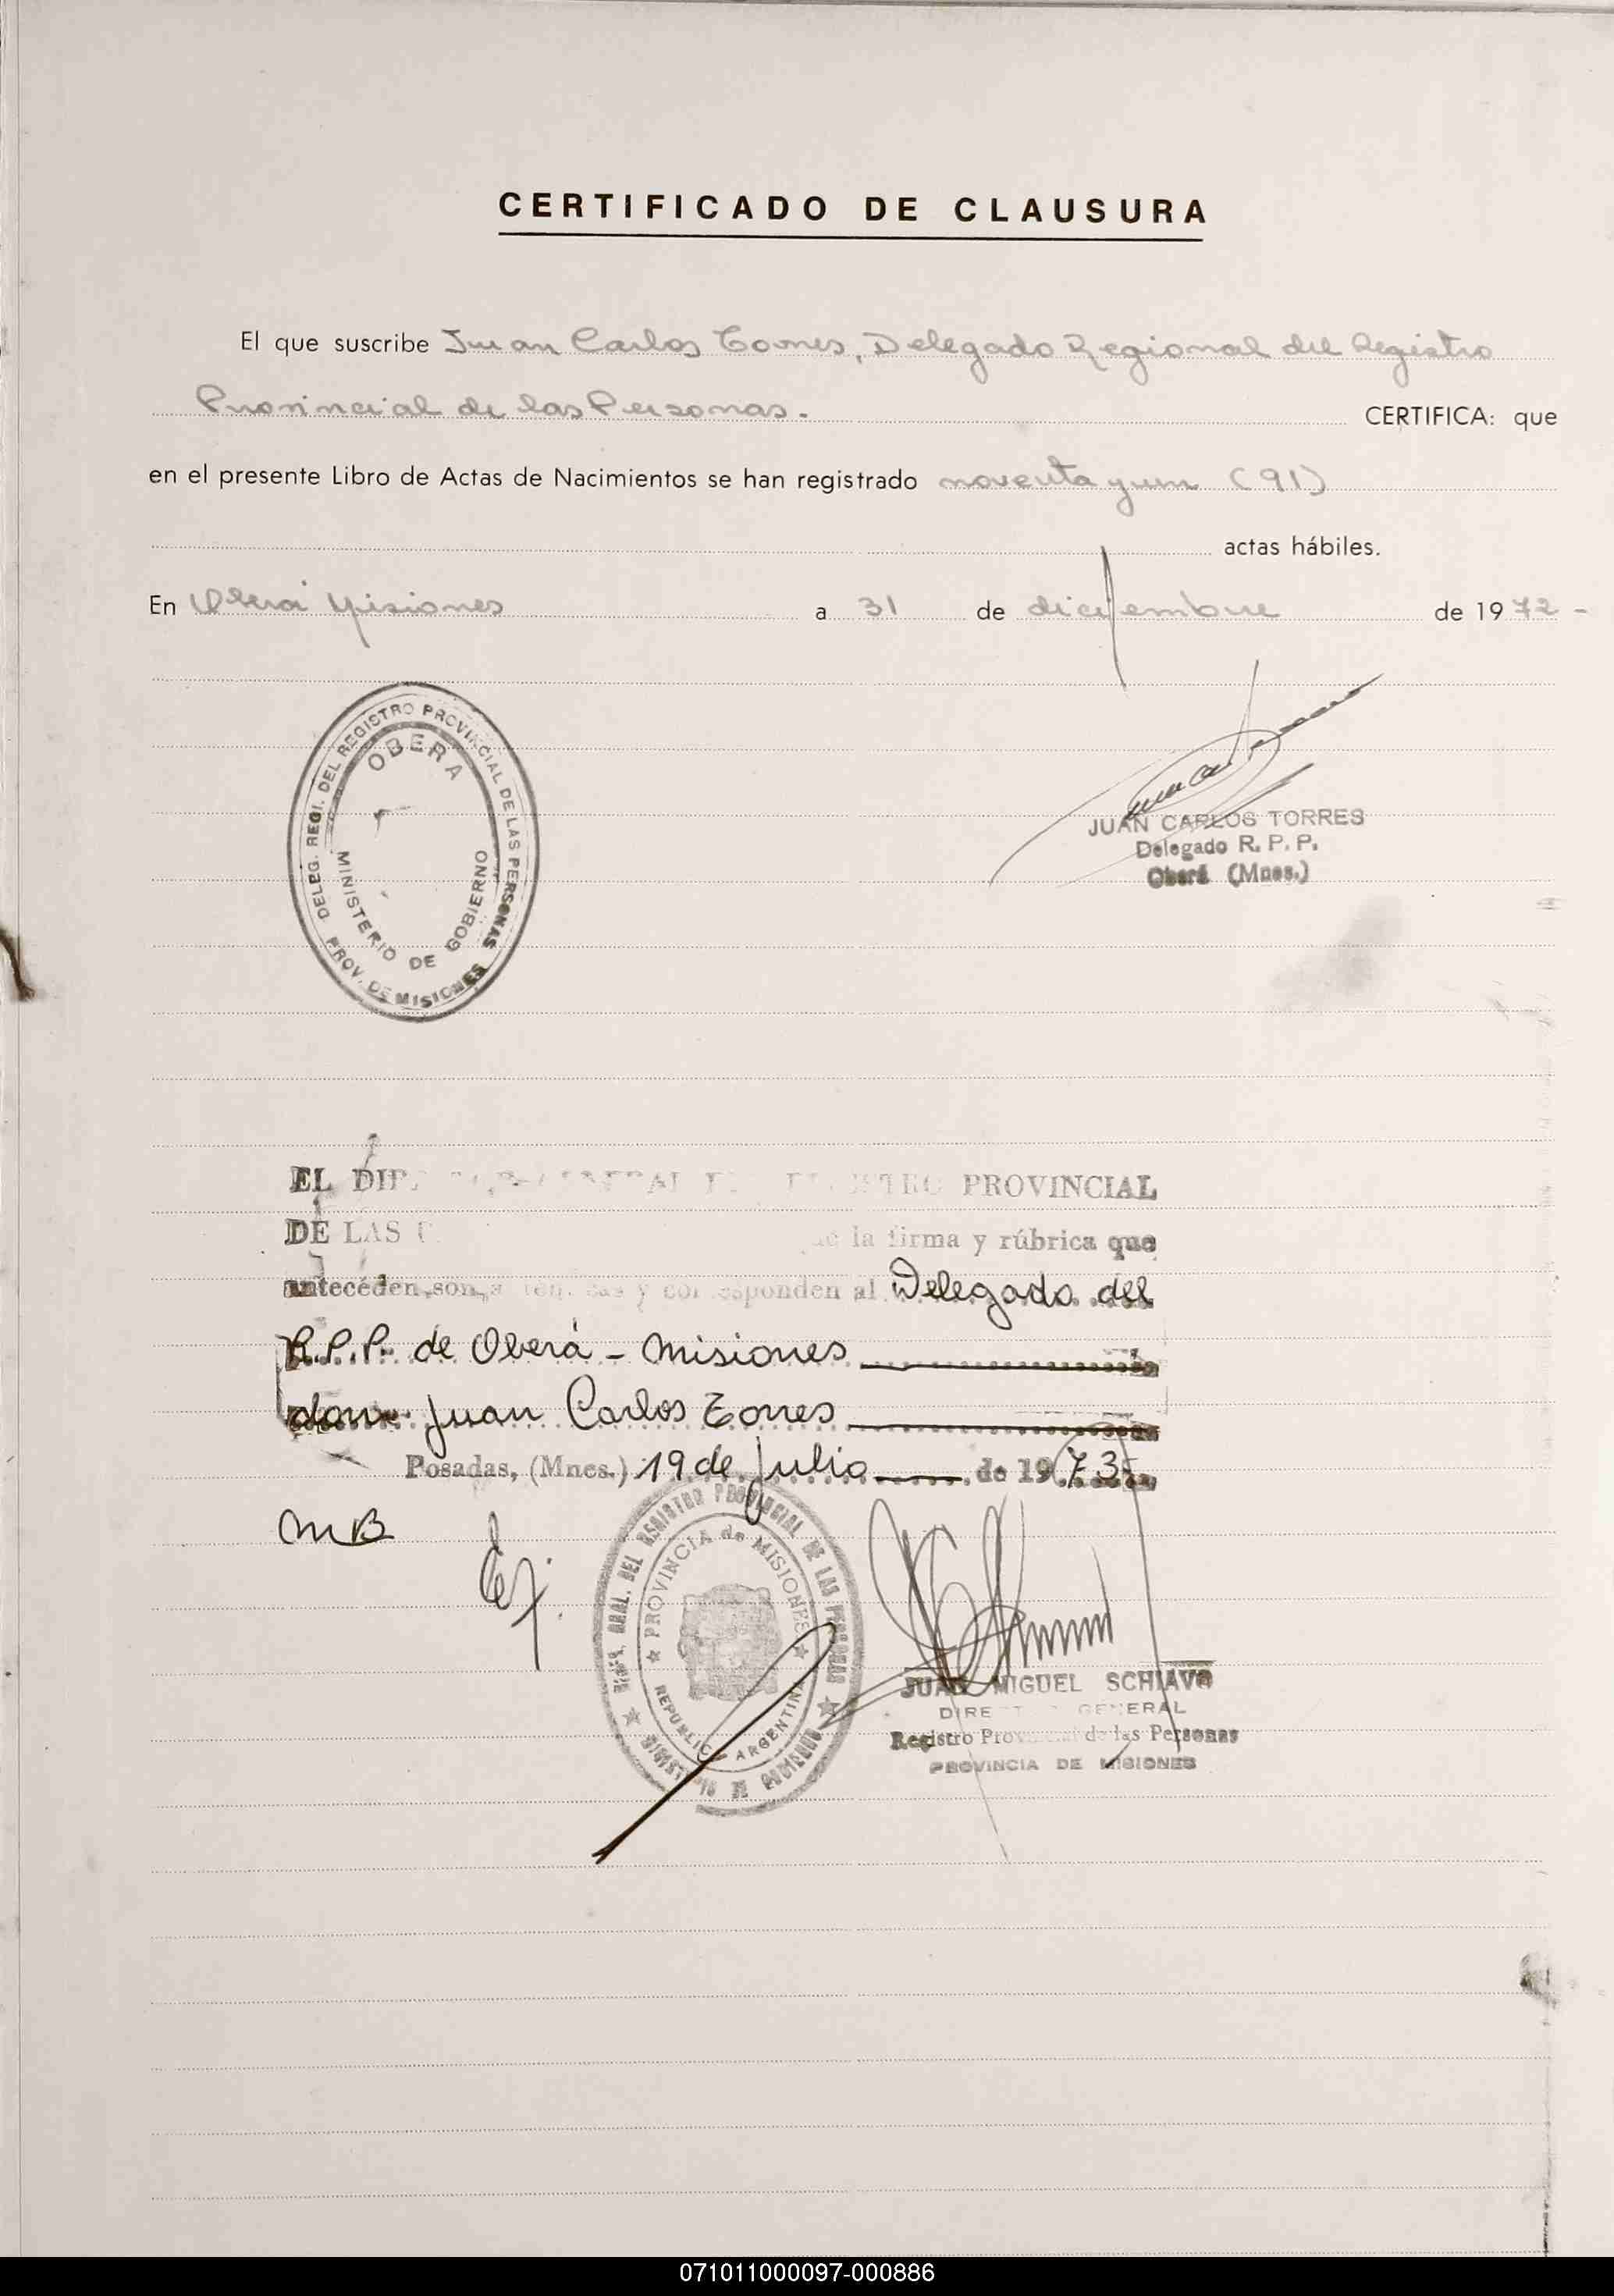 CERTIFICADO DE CLAUSURA
El que suscribe Juan Carlos Torres, Delegado Regional del Registro
Provincial de las Personas. CERTIFICA: que
en el presente Libro de Actas de Nacimientos se han registrado noventa y un (91)
actas hábiles.
En Oberá Misiones a 31 de diciembre de 1972 -
DELEG. REGI. DEL REGISTRO PROVINCIAL DE LAS PERSONAS
OBERA
MINISTERIO DE GOBIERNO
PROV. DE MISIONES
JUAN CARLOS TORRES
Delegado R. P. P.
Oberá (Mnes.)
EL PROVINCIAL
DE LAS la firma y rúbrica que
anteceden, son y corresponden al Delegado del
R.P.P. de Oberá - Misiones
don Juan Carlos Torres
Posadas, (Mnes.) 19 de Julio de 1973
MB
GRAL. DEL REGISTRO PROVINCIAL DE LAS PERSONAS
PROVINCIA de MISIONES
REPUBLICA ARGENTINA
MINISTERIO DE GOBIERNO
JUAN MIGUEL SCHIAVO
DIRECTOR GENERAL
Registro Provincial de las Personas
PROVINCIA DE MISIONES
071011000097-000886